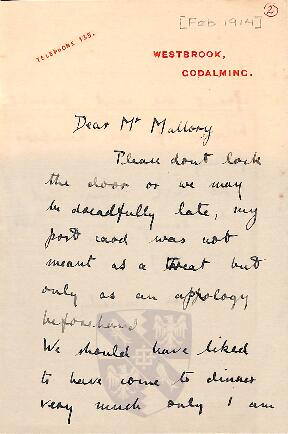 2
[Feb 1914]
TELEPHONE 135.
WESTBROOK,
GODALMING.
Dear Mr Mallory
Please dont lock
the door or we may
be dreadfully late, my
post card was not
meant as a threat but
only as an apology
beforehand
We should have liked
to have come to dinner
very much only I am